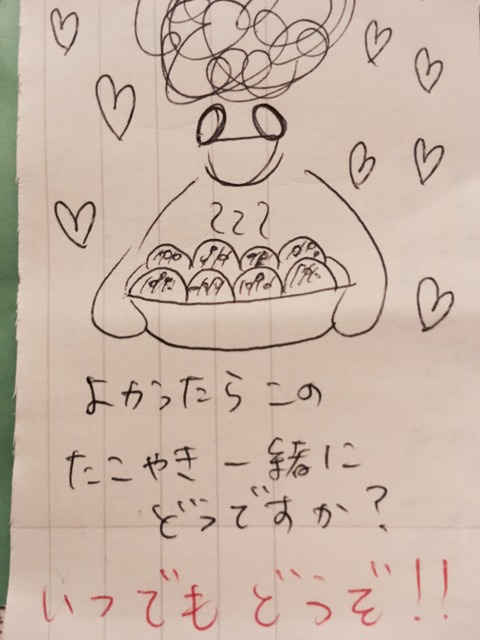 よかったらこの
たこやき一緒に
どうですか？
いつでもどうぞ!!